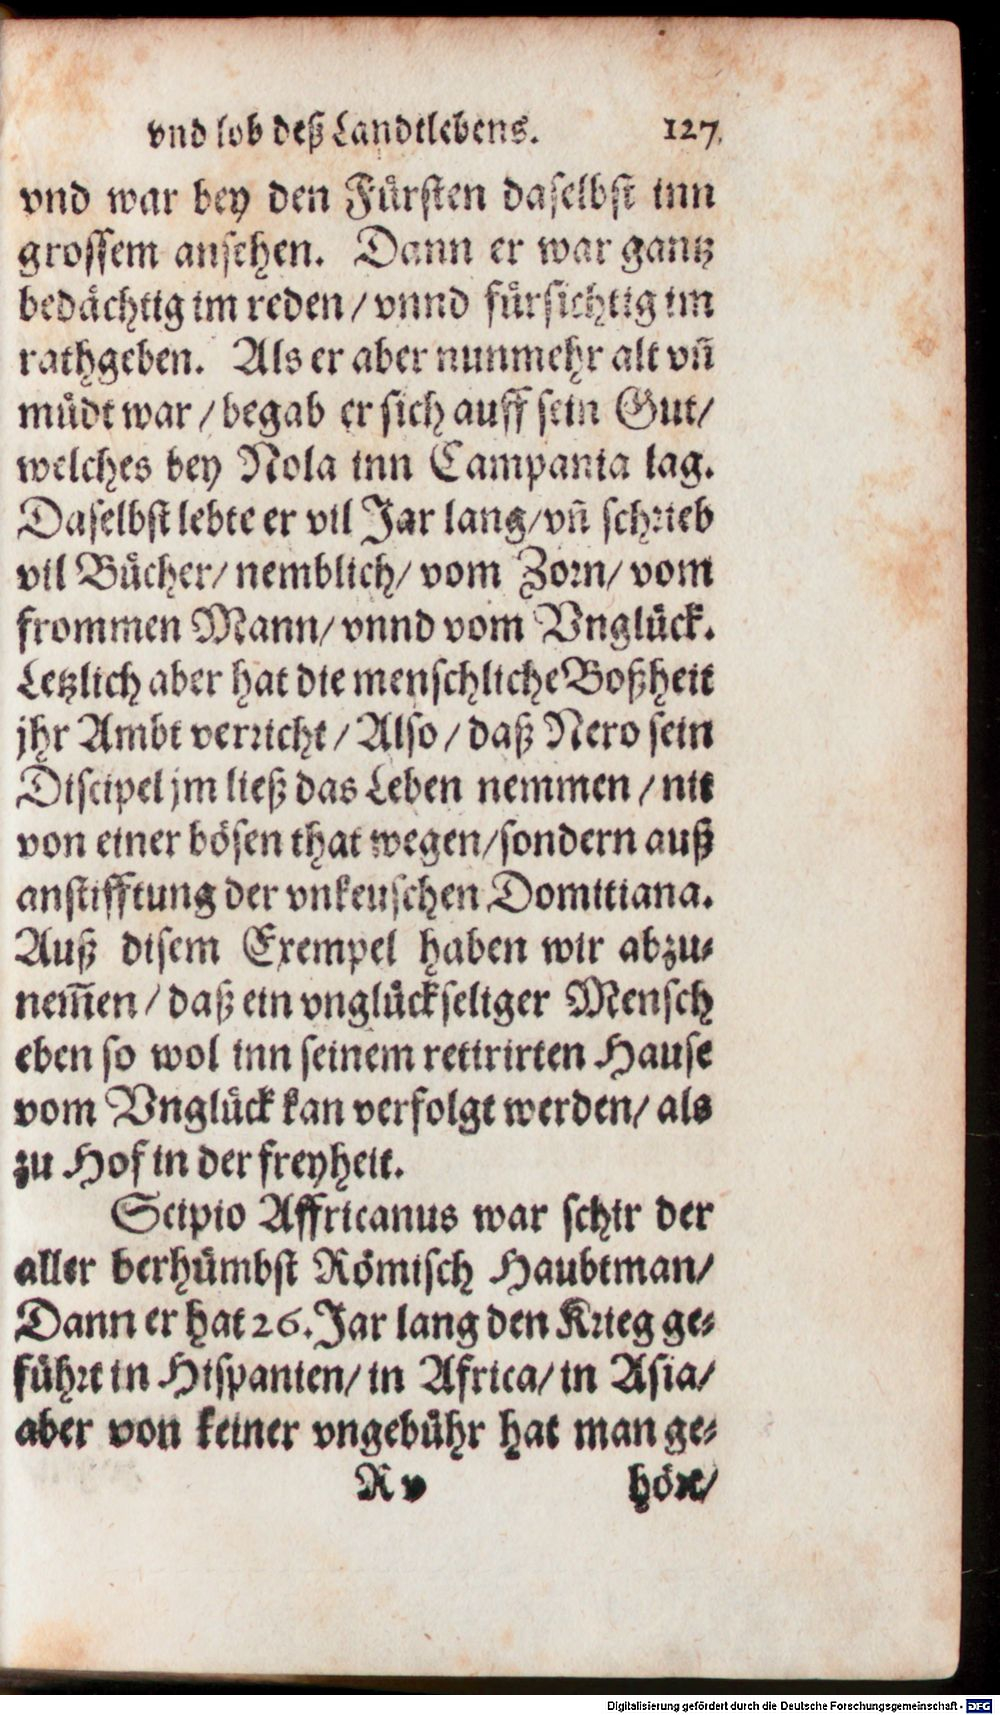 vnd lob deß Landtlebens. 127.
vnd war bey den Fürsten daselbst inn
grossem ansehen. Dann er war gantz
bedächtig im reden / vnnd fürsichtig im
rathgeben. Als er aber nunmehr alt vñ
müdt war / begab er sich auff sein Gut/
welches bey Nola inn Campania lag.
Daselbst lebte er vil Jar lang/vñ schrieb
vil Bücher/ nemblich/ vom Zorn/ vom
frommen Mann/ vnnd vom Vnglück.
Letzlich aber hat die menschliche Boßheit
jhr Ambt verricht / Also / daß Nero sein
Discipel jm ließ das Leben nemmen / nit
von einer bösen that wegen/sondern auß
anstifftung der vnkeuschen Domitiana.
Auß disem Exempel haben wir abzu-
nem̃en / daß ein vnglückseliger Mensch
eben so wol inn seinem retirirten Hause
vom Vnglück kan verfolgt werden/ als
zu Hof in der freyheit.
Scipio Affricanus war schir der
aller berhümbst Römisch Haubtman/
Dann er hat 26. Jar lang den Krieg ge-
führt in Hispanien/ in Africa/ in Asia/
aber von keiner vngebühr hat man ge-
R v hört/
Digitalisierung gefördert durch die Deutsche Forschungsgemeinschaft - DFG